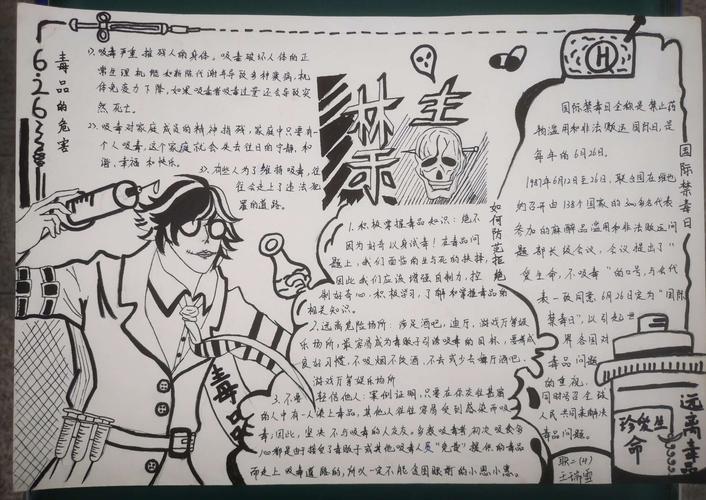 6.26
毒品的危害
1、吸毒严重摧残人的身体。吸毒破坏人体的正
常生理机能如新陈代谢并导致多种疾病,机
体免疫力下降,如果吸毒者吸毒过量还会导致突
然死亡。
2、吸毒对家庭成员的精神摧残,家庭中只要有
一个人吸毒,这个家庭就会失去往日的宁静、和
谐、幸福和快乐。
3、有些人为了维持吸毒,往
往会走上了违法犯
罪的道路。
禁毒
如何防范拒绝
1.积极掌握毒品知识:绝不
因为好奇以身试毒!在毒品问
题上,我们面临的生与死的抉择,
因此我们应该增强自制力,控
制好奇心。积极学习,了解和掌握毒品的
相关知识。
2.远离危险场所:涉足酒吧,迪厅,游戏厅等娱
乐场所,最容易成为毒贩子引诱吸毒的目标,要养成
良好习惯,不吸烟不饮酒,不去或少去舞厅酒吧、
游戏厅等娱乐场所
3.不要轻信他人:案例证明,只要在你交往甚密
的人中有一人染上毒品,其他人往往容易受到感染而吸
毒,因此,坚决不与吸毒的人交友。多数吸毒者初次吸食多
心都是由于接受了毒贩子或其他吸毒人员"免费"提供的毒品
而走上吸毒道路的,所以一定不能贪图眼前的小恩小惠。
H
国际禁毒日
国际禁毒日全称是禁止药
物滥用和非法贩运国际日,是
每年的6月26日。
1987年6月12日至26日,联合国在维也
纳召开由138个国家的3000多名代表
参加的麻醉品滥用和非法贩运问
题部长级会议,会议提出了"
爱生命,不吸毒"的口号,与会代
表一致同意6月26日定为"国际
禁毒日",以引起世
界各国对
毒品问题
的重视,
同时号召全球
人民共同来解决
毒品问题。
珍爱生
命
远离毒品
职二(4)
王瑞雪